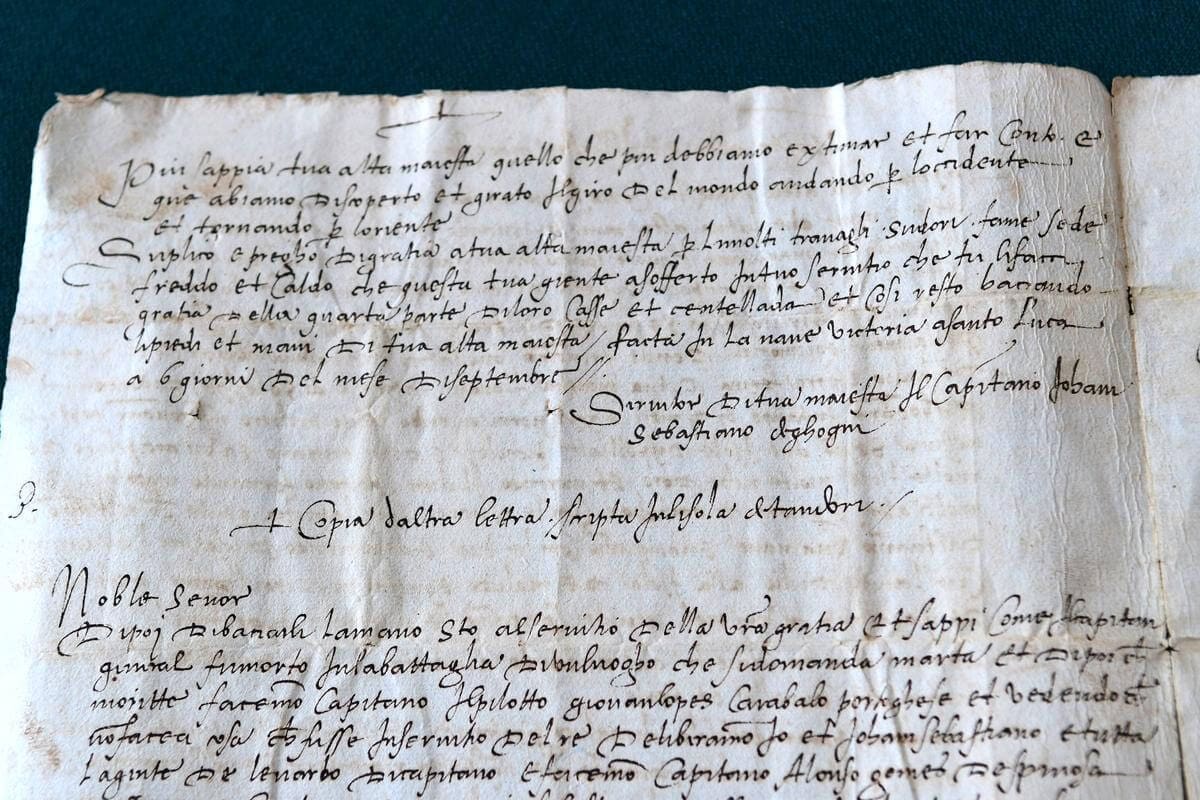 Piu sappia tua alta maiesta quello che piu debbiamo extimar et far Conto. e
che abiamo Discoperto et girato Il giro Del mondo andando p loccidente
et tornando p loriente
Suplico e pregho Digratia a tua alta maiesta p limolti travagli. Sudori. fame sede
freddo et Caldo che questa tua giente a sofferto In tuo servitio che tu li facci
gratia Della quarta parte Di loro Casse et centellada et Cosi resto baciando
li piedi et mani Di tua alta maiesta / facta In La nave victoria a santo Luca
a 6 giorni Del mese Di septembre //
Servitor Di tua maiesta Il Capitano Johan
Sebastiano
3.
+ Copia daltra lettra. scripta In lisola
Noble Senor
Dipoi Di baciarli La mano Sto al servitio Della vra gratia Et sappi Come
fu morto In la battaglia Di che si domanda marta et Dipoi ch
moritte facemo Capitano Il pilotto giovan lopes Carabalo portghese et vedendo ch
no facea cosa ch fusse In servitio Del re Delibiramo Io et Johan sebastiano e tutta
La ginte De levarlo Di capitano e facemo Capitano Alonso gomes De spinosa